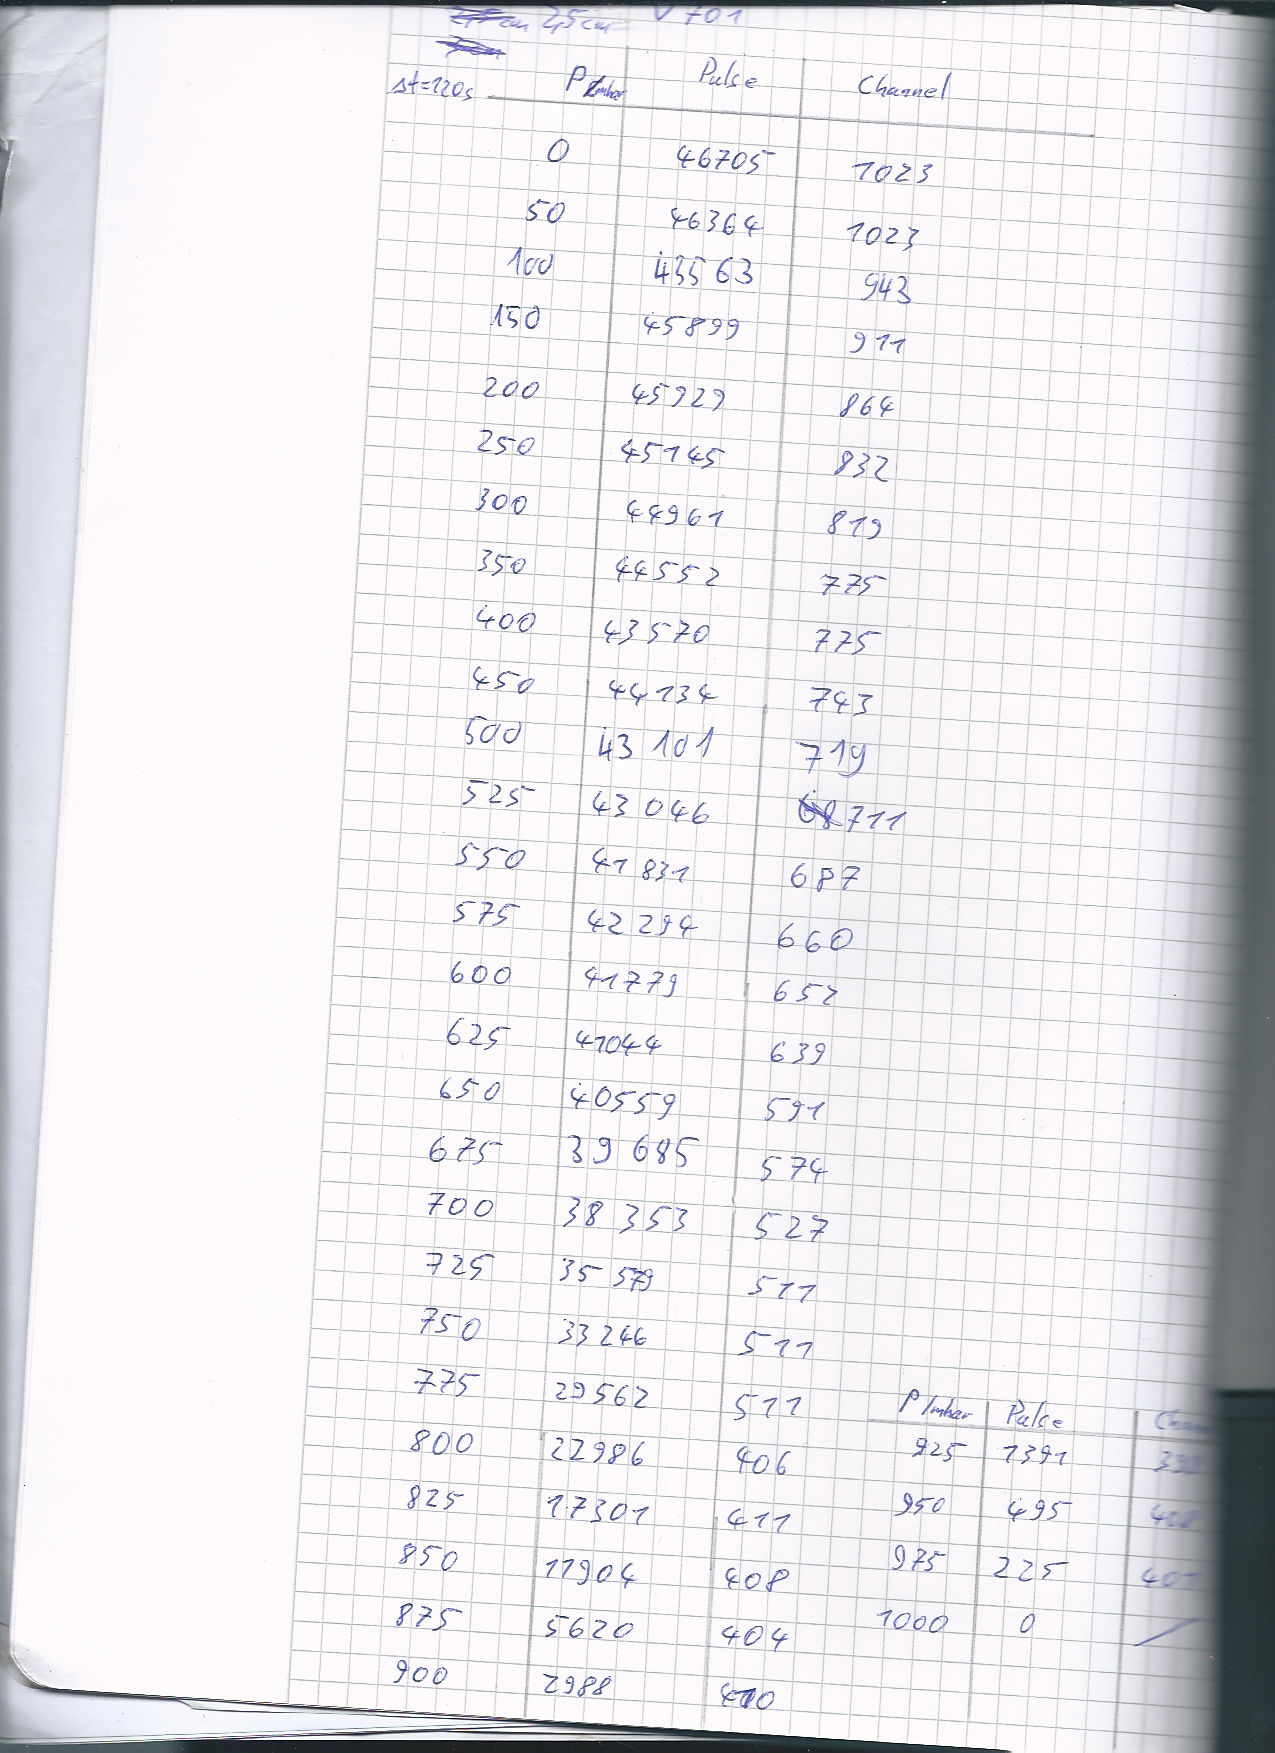 2,5 cm V701
Δt=120s P/mbar Pulse Channel
0 46705 1023
50 46364 1023
100 43563 943
150 45899 911
200 45929 864
250 45145 832
300 44961 819
350 44552 775
400 43570 775
450 44134 743
500 43101 719
525 43046 711
550 41831 687
575 42294 660
600 41779 652
625 41044 639
650 40559 591
675 39685 574
700 38353 527
725 35579 511
750 33246 511
775 29562 511
800 22986 406
825 17301 411
850 11904 408
875 5620 404
900 2988 410
P/mbar Pulse
925 1391
950 495 408
975 225 407
1000 0 /